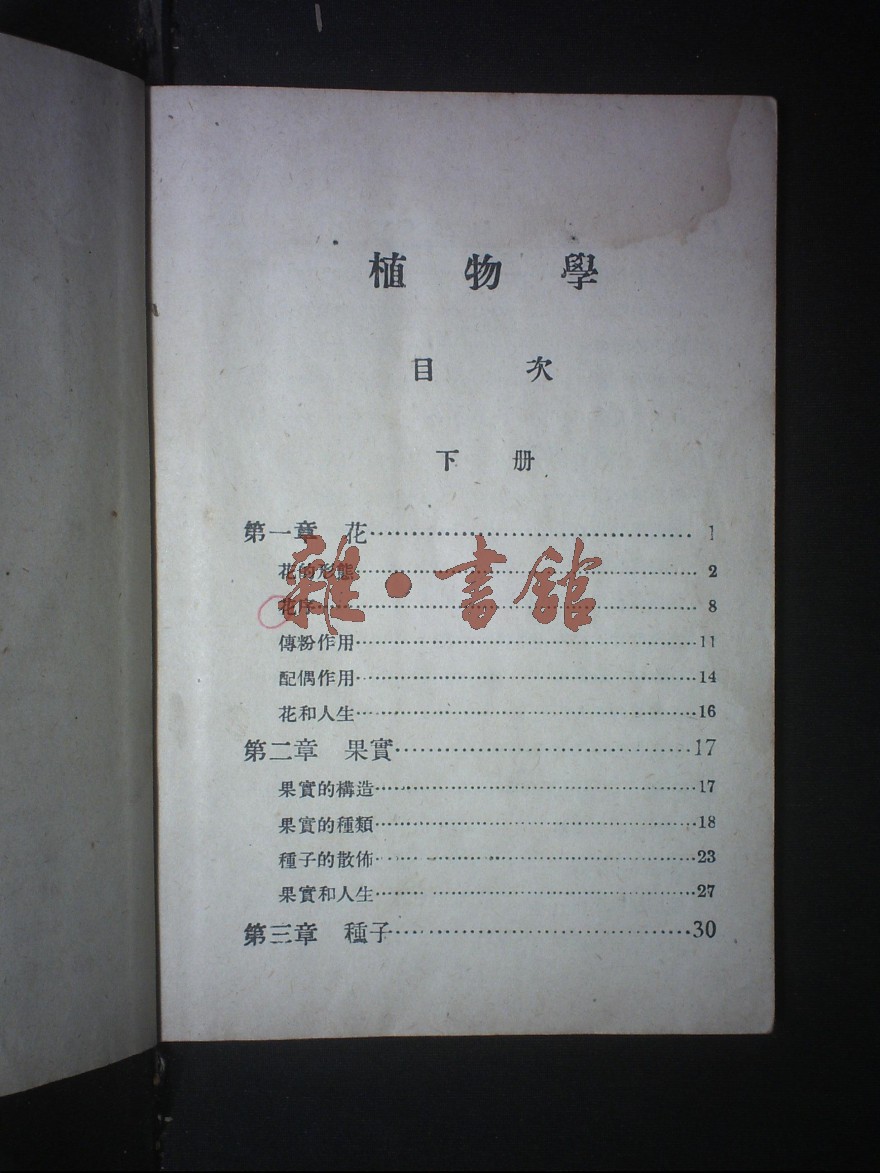 植物學
目次
下册
第一章 花……………………………………1
花的形態……………………………………2
花序……………………………………8
傳粉作用……………………………………11
配偶作用……………………………………14
花和人生……………………………………16
第二章 果實……………………………………17
果實的構造……………………………………17
果實的種類……………………………………18
種子的散佈……………………………………23
果實和人生……………………………………27
第三章 種子……………………………………30
雜·書館